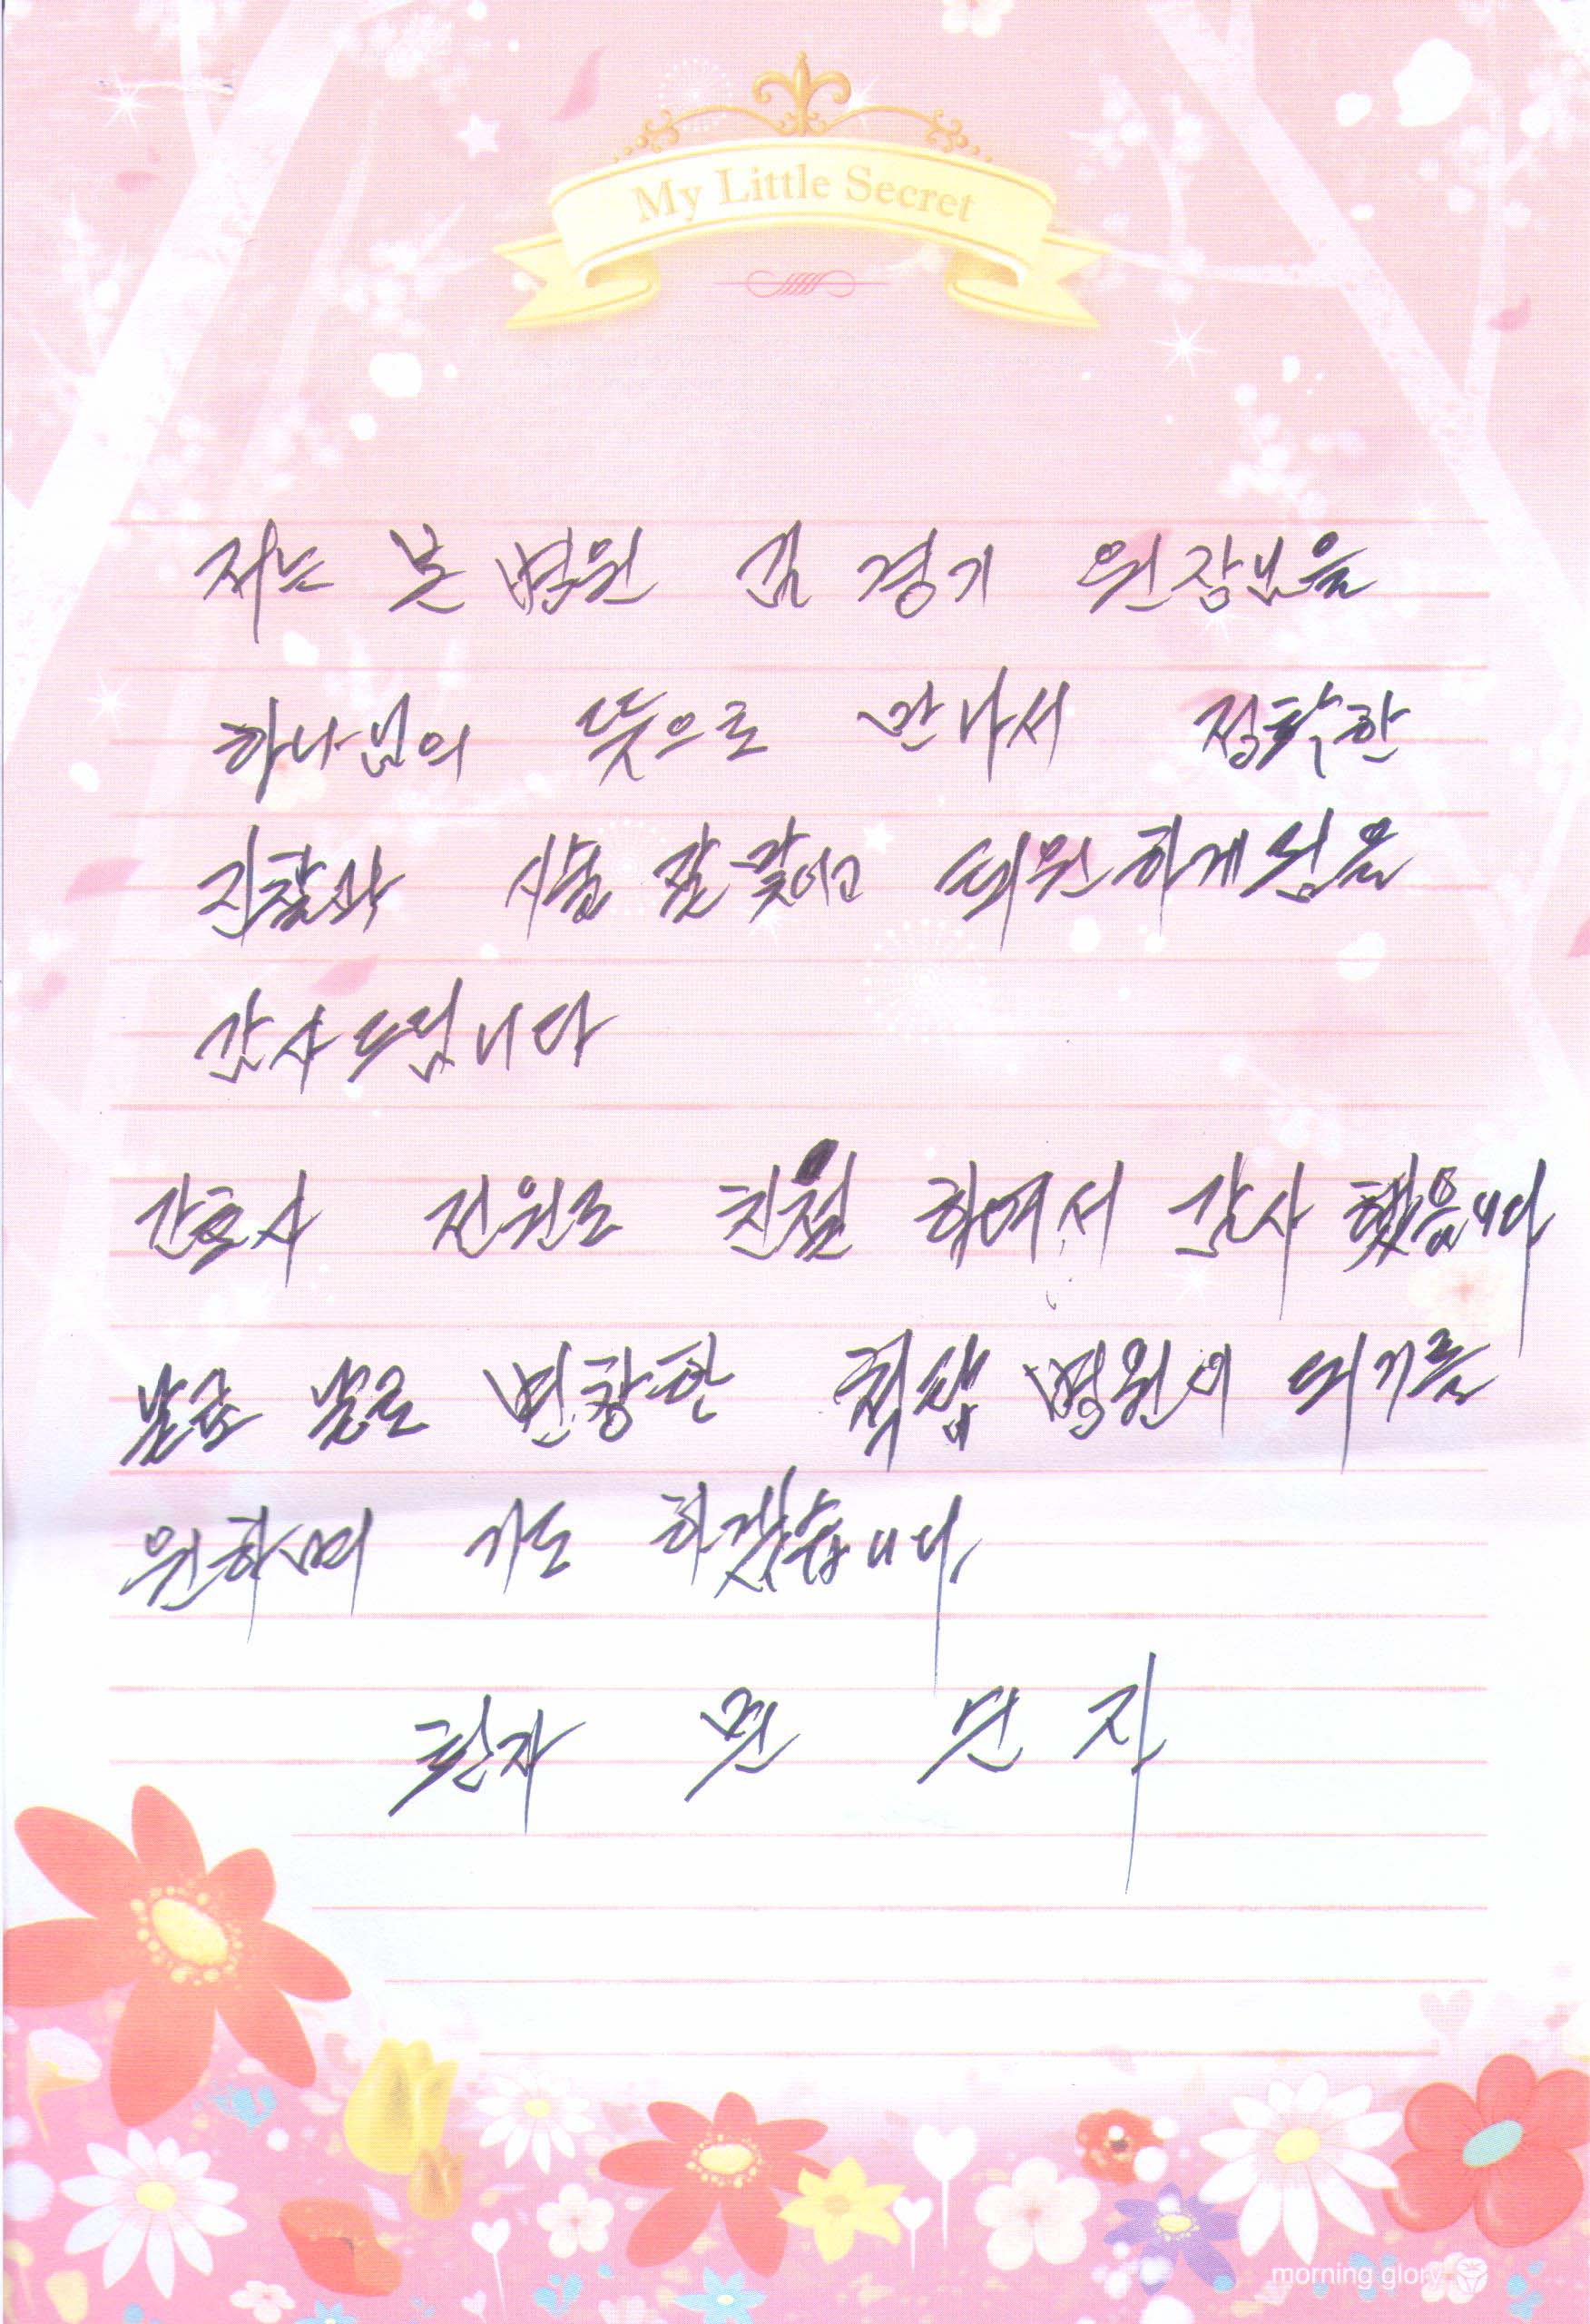 My Little Secret
저는 본 병원 김 경기 원장님을
하나님의 뜻으로 만나서 정확한
진찰과 시술 잘 맞이고 퇴원하게 됨을
감사드립니다
간호사 전원도 친절 하여서 감사 했읍니다
날로 번창한 척삽 병원이 되기를
원하며 기도 하겠습니다.
환자 민 단 자
morning glory